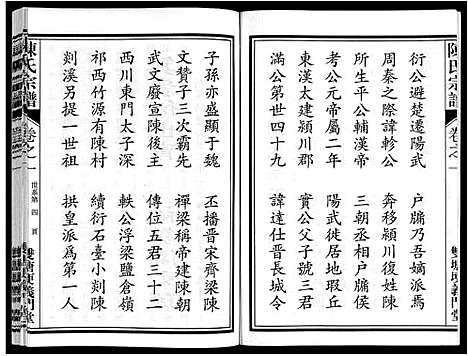 陳氏宗譜
卷之一
衍公避楚遷陽武
戶牖乃吾嫡派焉
周秦之際諱軫公
奔移潁川復姓陳
所生平公輔漢帝
三朝丞相戶牖侯
考公元帝屬二年
陽武徙居地瑕丘
東漢太建潁川郡
共公父子號三君
滿公第世四十九
諱達公晉長城令
子孫亦盛顯于魏
丕播晉宋齊梁陳
文贊子三次霸先
禪梁稱帝建陳朝
武文廢宣陳後主
傳位五君三十二
西川東門太子深
軼公浮梁鹽倉嶺
祁西竹源有陳村
續衍石臺小剡陳
剡溪另提一世祖
拱皇派為第一人
陳氏宗譜
卷之一
世系第 四 頁